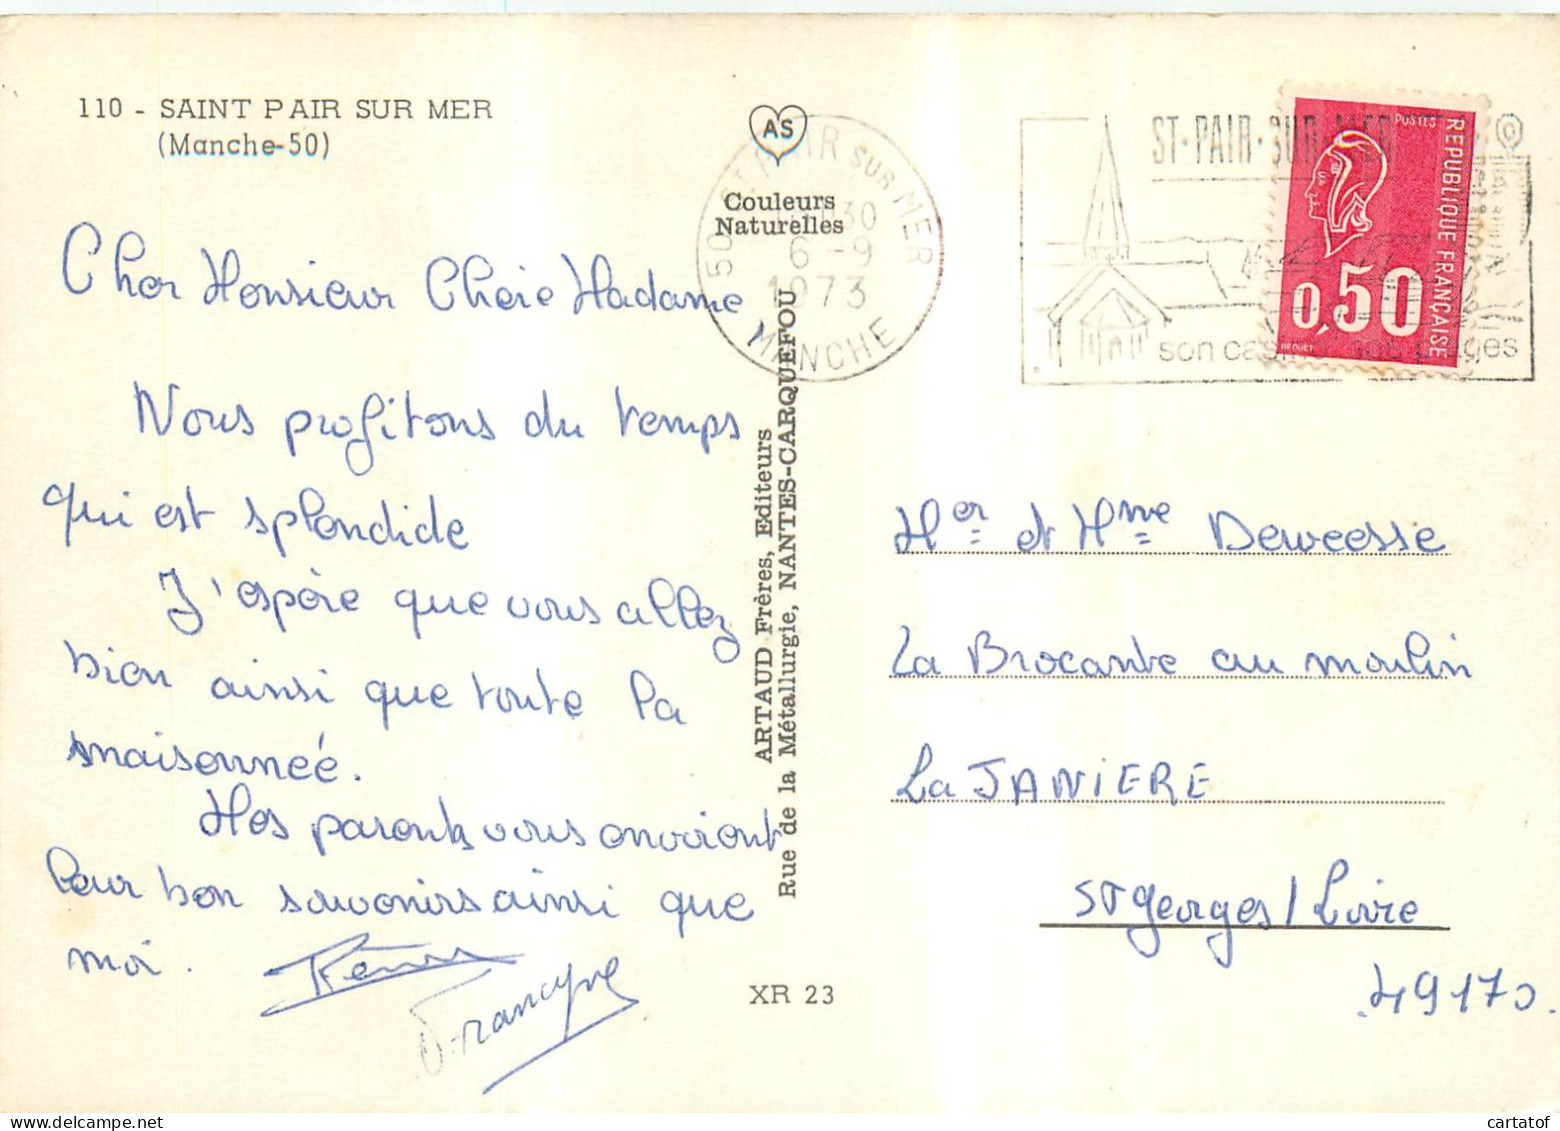 110 - SAINT PAIR SUR MER
(Manche-50)
AS
Couleurs
Naturelles
50 ST PAIR SUR MER
30
6 -9
1973
MANCHE
ST-PAIR-SUR-MER
son
plages
POSTES
REPUBLIQUE FRANÇAISE
0,50
BEQUET
Cher Monsieur Chère Madame
Nous profitons du temps
qui est splendide
J'espère que vous allez
bien ainsi que toute la
maisonneé.
Mes parents vous envoient
leur bon souvenirs ainsi que
moi.
Francyne
ARTAUD Frères, Editeurs
Rue de la Métallurgie, NANTES-CARQUEFOU
XR 23
Mer et Mme Deweesse
La Brocante au moulin
La JANIERE
St Georges / Loire
49170.
cartatof